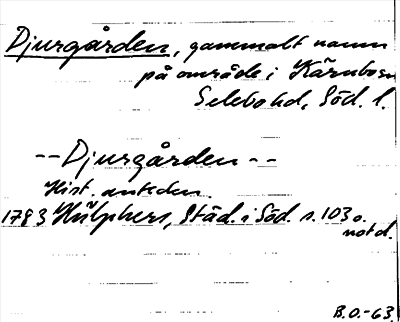 Djurgården, gammalt namn
på område i Kärnbo sn
Selebo hd, Söd. l.
-- Djurgården --
Hist. antedn.
1783 Hülphers, Städ. i Söd. s. 103 o.
not d.
B.O.-63.